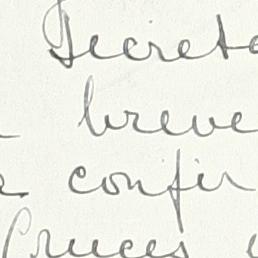 Secreta
breve
confir
Cruces